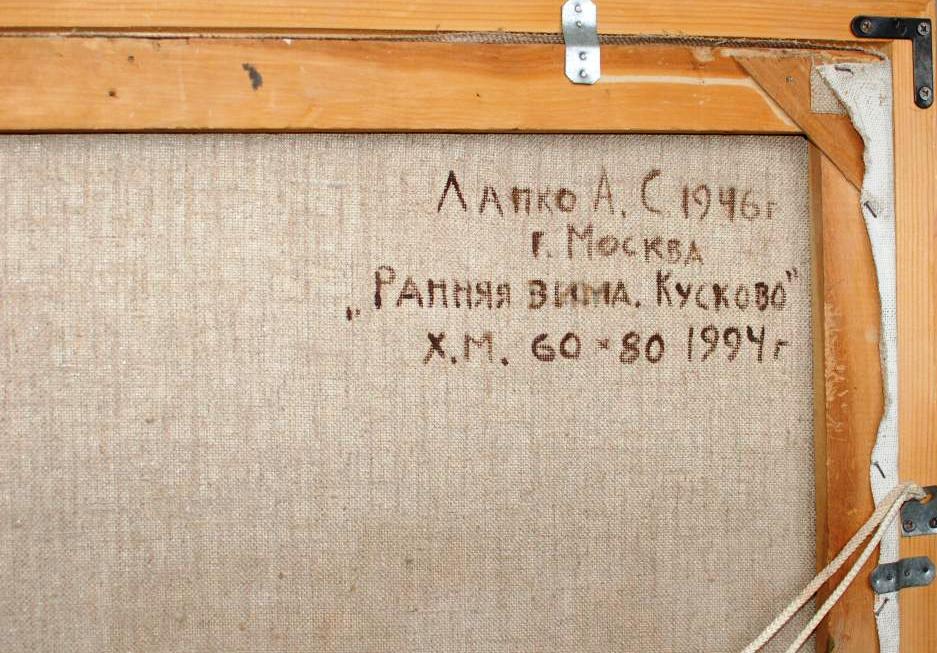 Лапко А. С. 1946г
г. Москва
„Ранняя зима. Кусково"
Х.М. 60×80 1994г